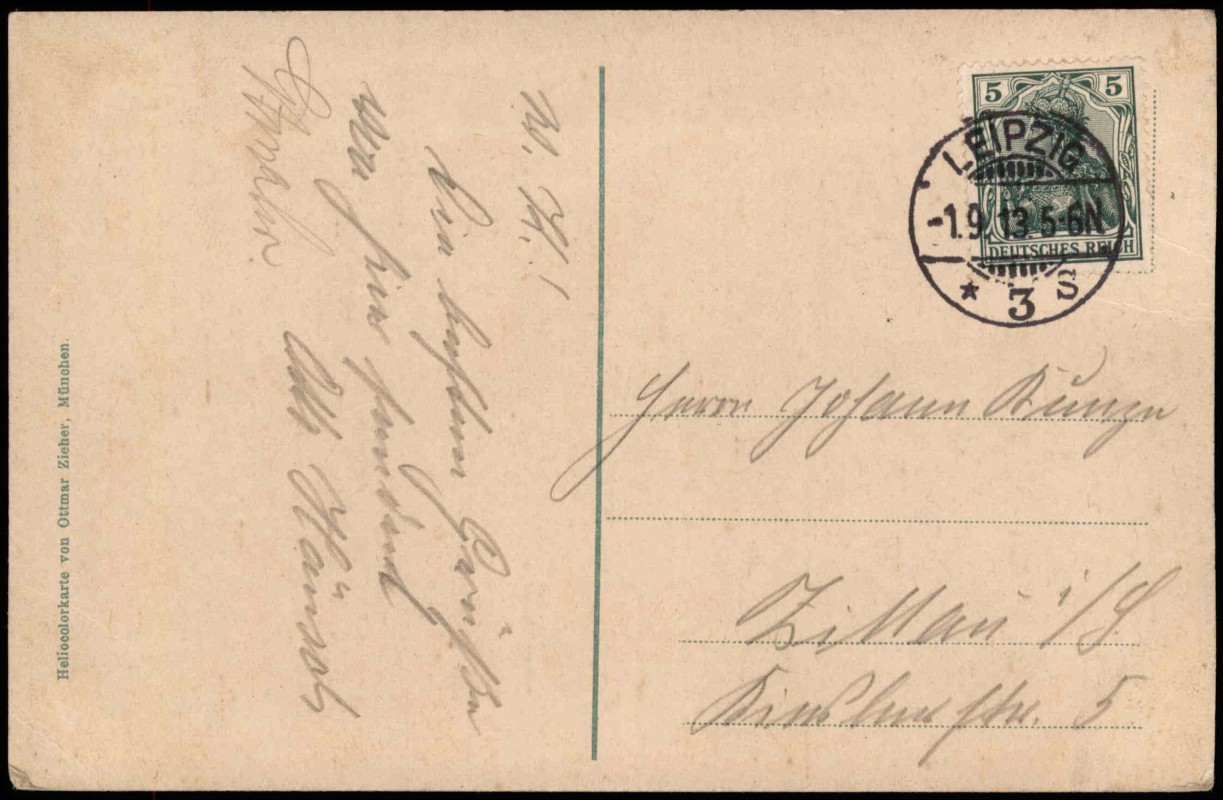 W. H.!
Die besten Grüße
von hier sendet
Otto Hänsch
5 5
DEUTSCHES REICH
LEIPZIG
-1.9.13.5-6N
* 3 S
Herrn Johann Kunze
Zittau i/S.
str. 5
Heliocolorkarte von Ottmar Zieher, München.